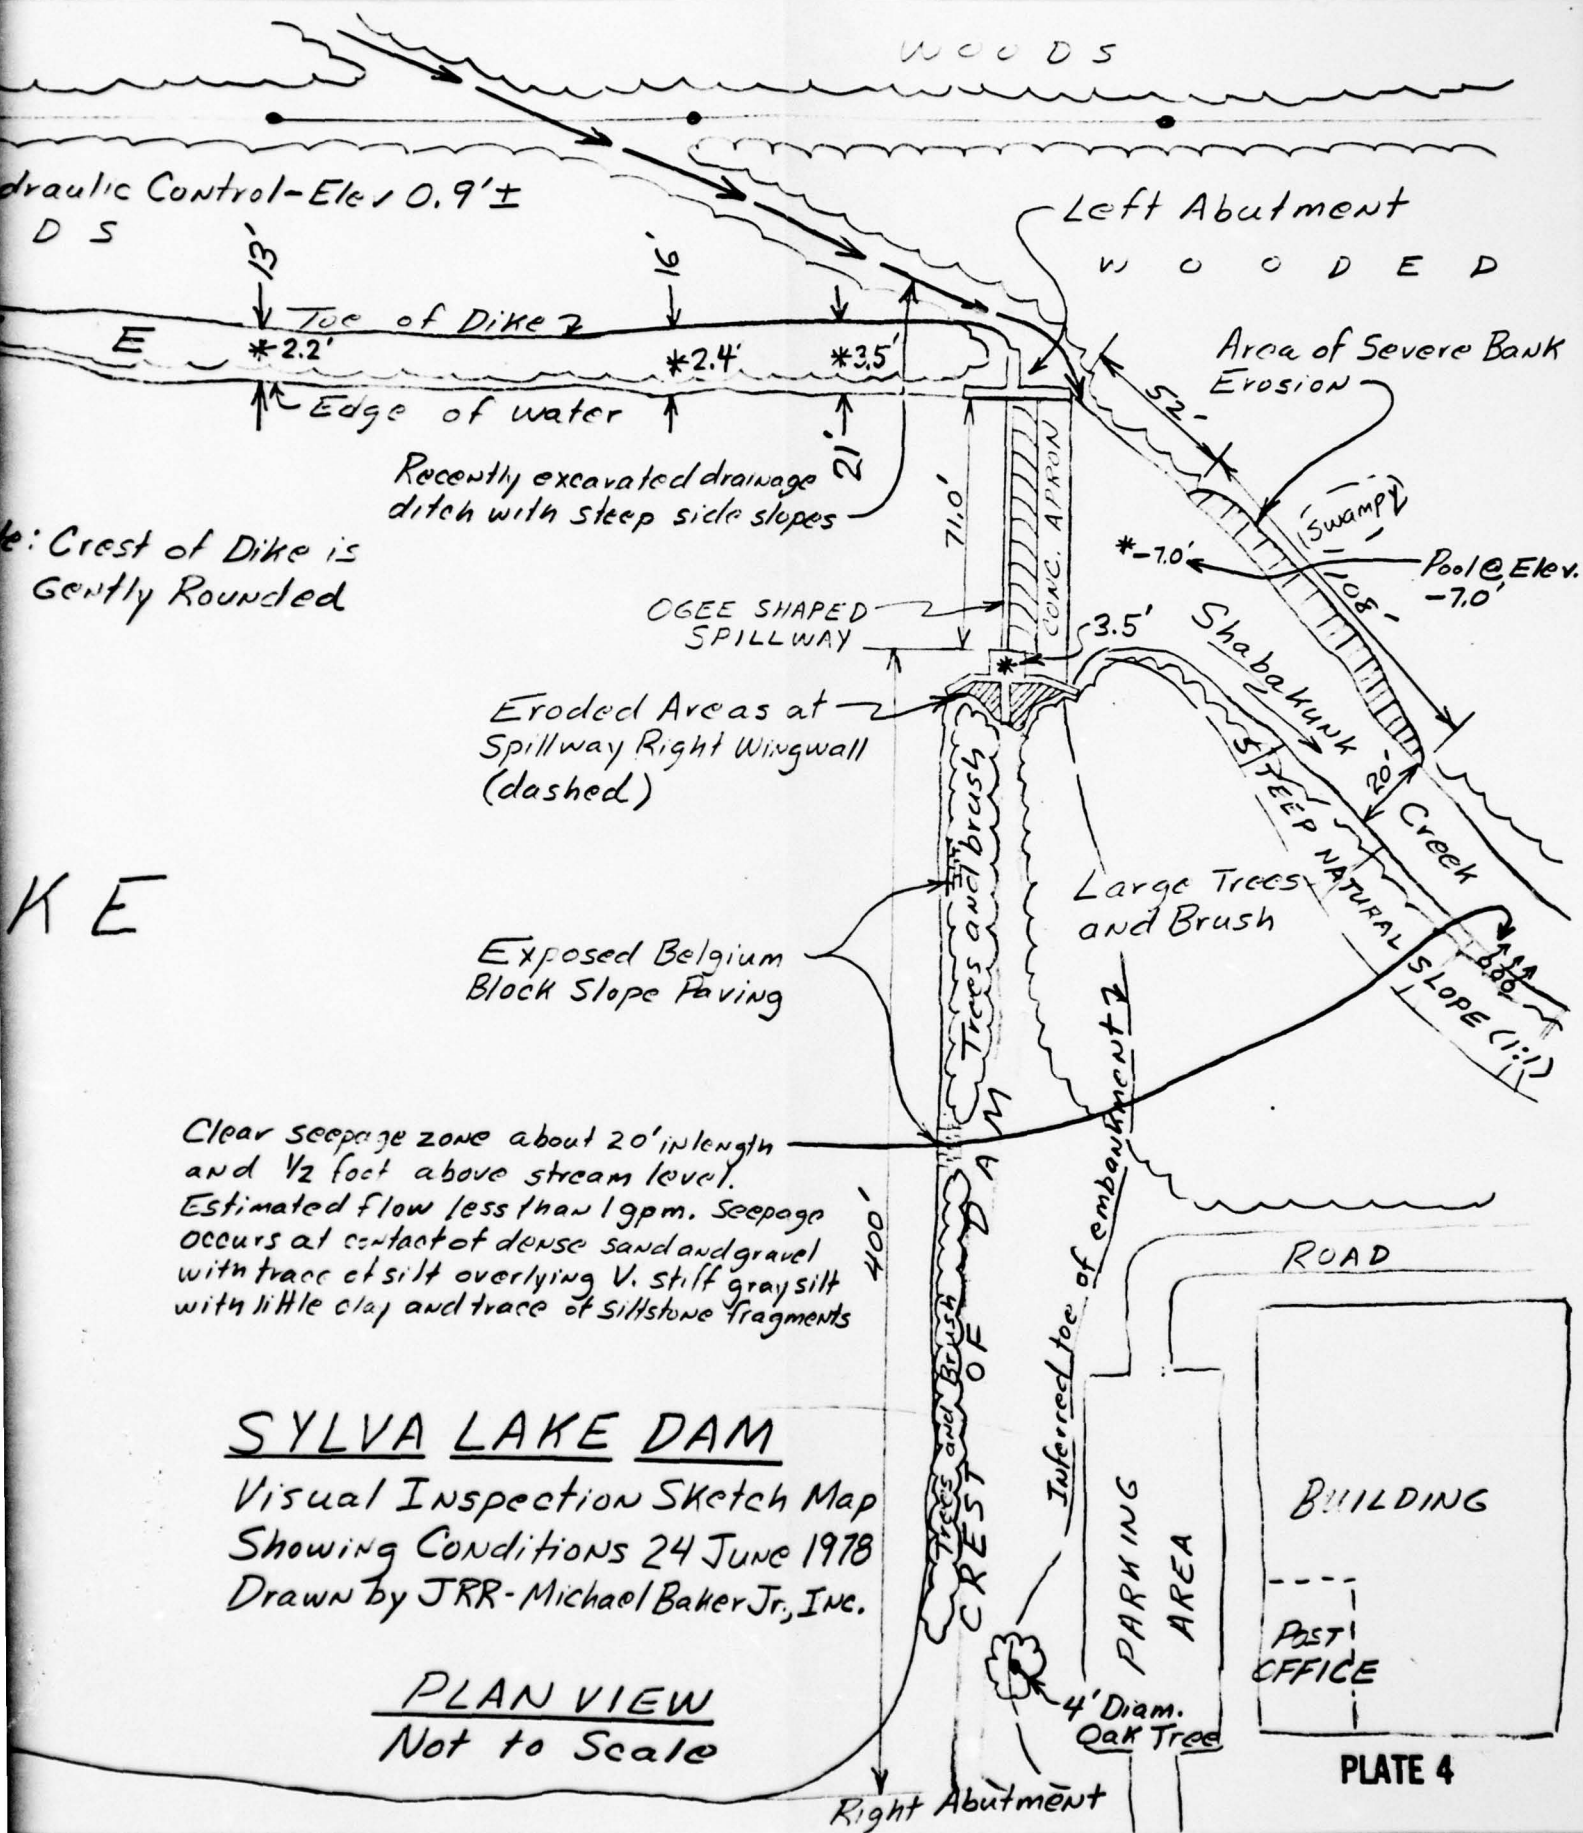 WOODS
draulic Control-Elev 0.9'±
D S
Left Abutment
WOODED
13'
16'
Toe of Dike
E
*2.2'
*2.4'
*3.5'
Edge of water
21'
Area of Severe Bank
Erosion
52'
Recently excavated drainage
ditch with steep side slopes
71.0'
CONC. APRON
(Swampy)
e: Crest of Dike is
Gently Rounded
*-7.0'
Pool @ Elev.
-7.0'
108'
OGEE SHAPED
SPILLWAY
*
3.5'
Shabakunk
Creek
20'
Eroded Areas at
Spillway Right Wingwall
(dashed)
STEEP NATURAL SLOPE (1:1)
Trees and brush
KE
Large Trees
and Brush
Exposed Belgium
Block Slope Paving
Clear seepage zone about 20' in length
and 1/2 foot above stream level.
Estimated flow less than 1 gpm. Seepage
occurs at contact of dense sand and gravel
with trace of silt overlying V. stiff gray silt
with little clay and trace of siltstone fragments
400'
CREST OF DAM
Trees and Brush
Inferred toe of embankment
ROAD
SYLVA LAKE DAM
Visual Inspection Sketch Map
Showing Conditions 24 June 1978
Drawn by JRR-Michael Baker Jr., Inc.
PARKING
AREA
BUILDING
POST
OFFICE
PLAN VIEW
Not to Scale
4' Diam.
Oak Tree
Right Abutment
PLATE 4